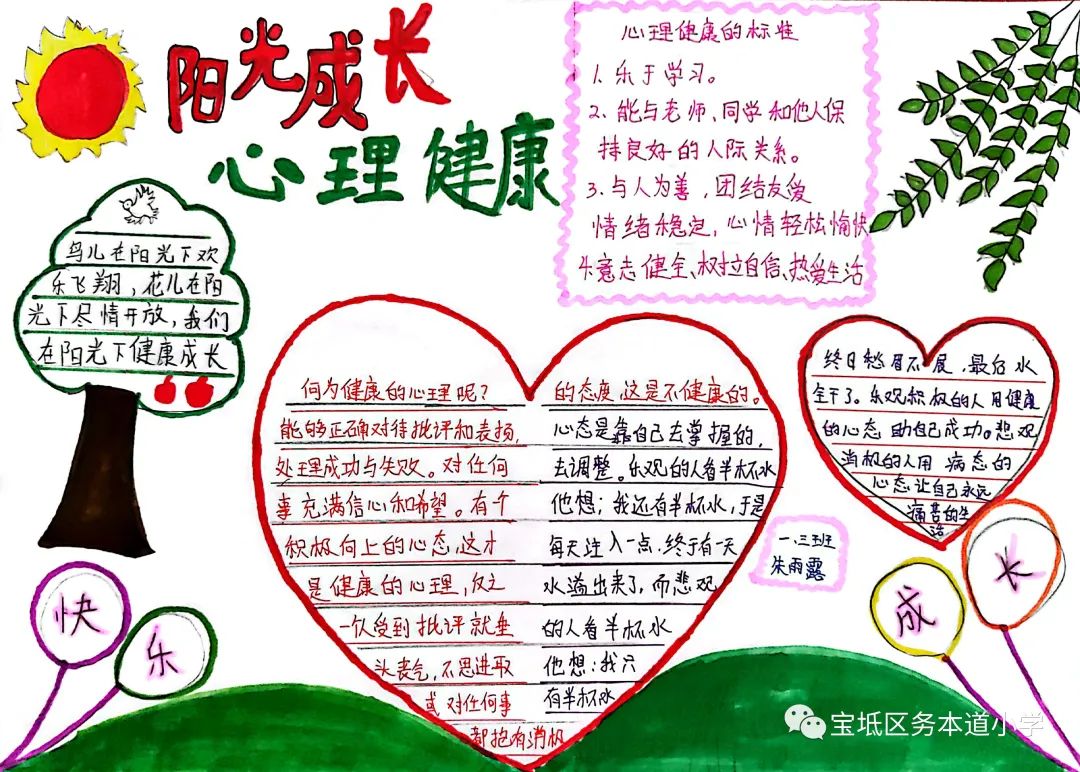 阳光成长
心理健康
心理健康的标准
1、乐于学习。
2、能与老师、同学和他人保
持良好的人际关系。
3、与人为善，团结友爱
情绪稳定，心情轻松愉快
4、意志健全、权拉自信、热爱生活
鸟儿在阳光下欢
乐飞翔，花儿在阳
光下尽情开放，我们
在阳光下健康成长
何为健康的心理呢？
能够正确对待批评和表扬，
处理成功与失败。对任何
事充满信心和希望。有个
积极向上的心态，这才
是健康的心理，反之
一仈受到批评就垂
头丧气，不思进取
或对任何事
都抱有消极
的态度，这是不健康的。
心态是靠自己去掌握的，
去调整。乐观的人看半杯水
他想；我还有半杯水，于是
每天注入一点，终于有一天
水溢出来了，而悲观
的人看半杯水
他想：我只
有半杯水
终日愁眉不展，最后水
全干了。乐观积极的人用健康
的心态助自己成功。悲观
消极的人用病态的
心态让自己永远
痛苦的生
活
一、三班
朱雨露
快
乐
成
长
宝坻区务本道小学